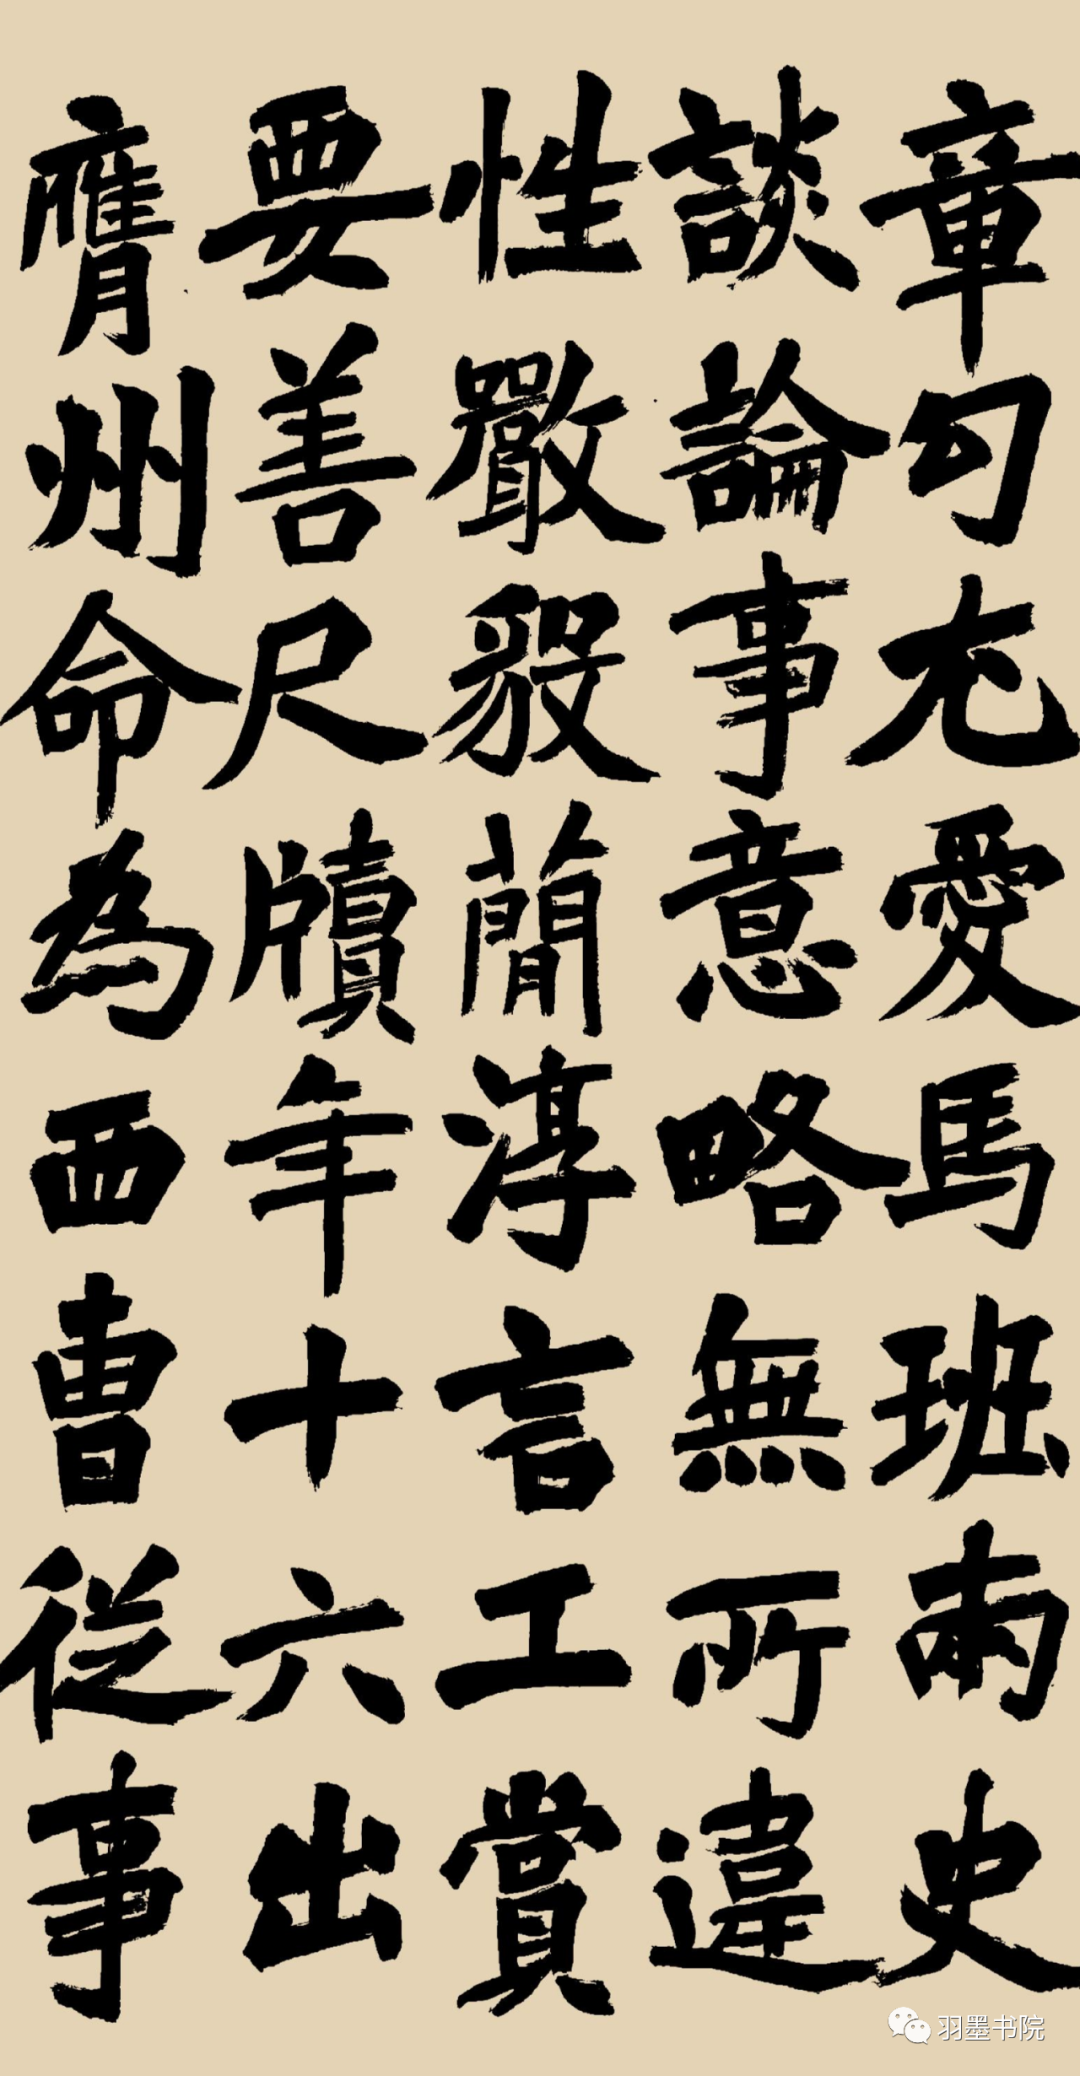 章句尤愛馬班兩史
談論事意略無所違
性嚴毅簡淳言工賞
要善尺牘年十六出
膺州命為西曹從事
羽墨书院